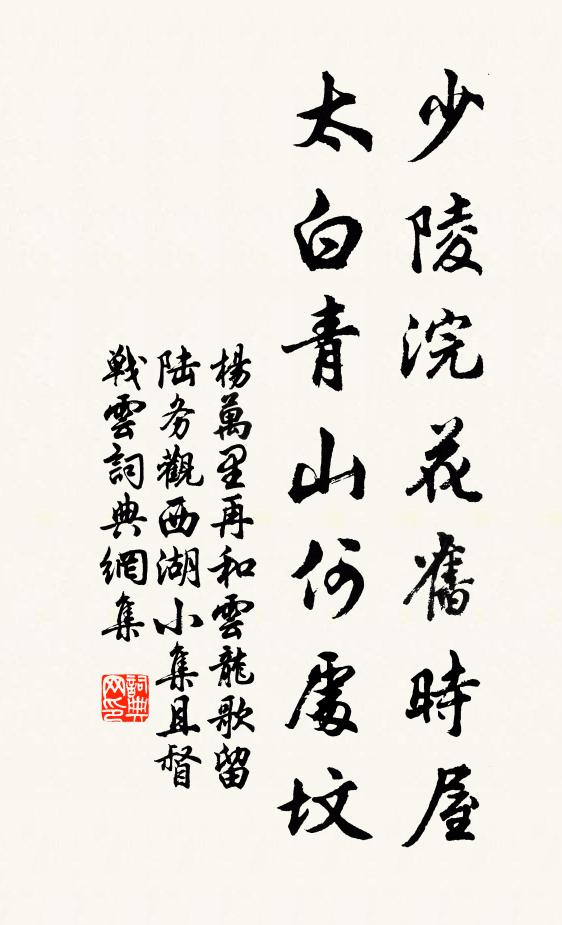 少陵浣花舊時屋
太白青山何處墳
楊萬里再和雲龍歌留
陸务觀西湖小集且督
戰雲詞典網集
詞典网印